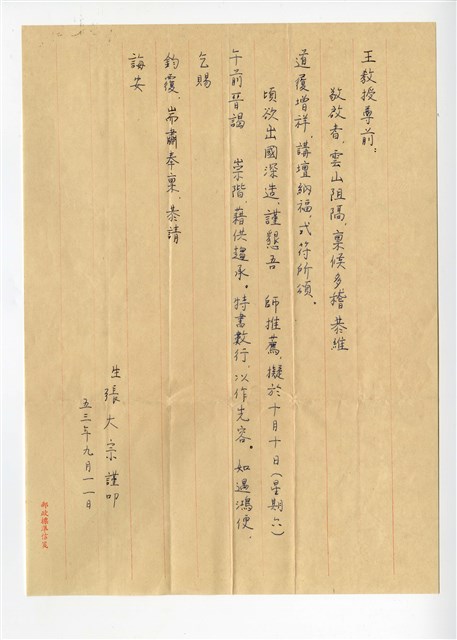 王教授尊前：
敬啟者，雲山阻隔，稟候多稽 恭維
道履增祥，講壇納福，式符所頌。
頃欲出國深造，謹懇吾 師推薦，擬於十月十日（星期六）
午前晉謁 崇階，藉供趨承。特書數行，以作先容。如遇鴻便，
乞賜
鈞覆，耑肅奉稟，恭請
誨安
生 張大宗謹叩
五三年九月一一日
郵政標準信箋